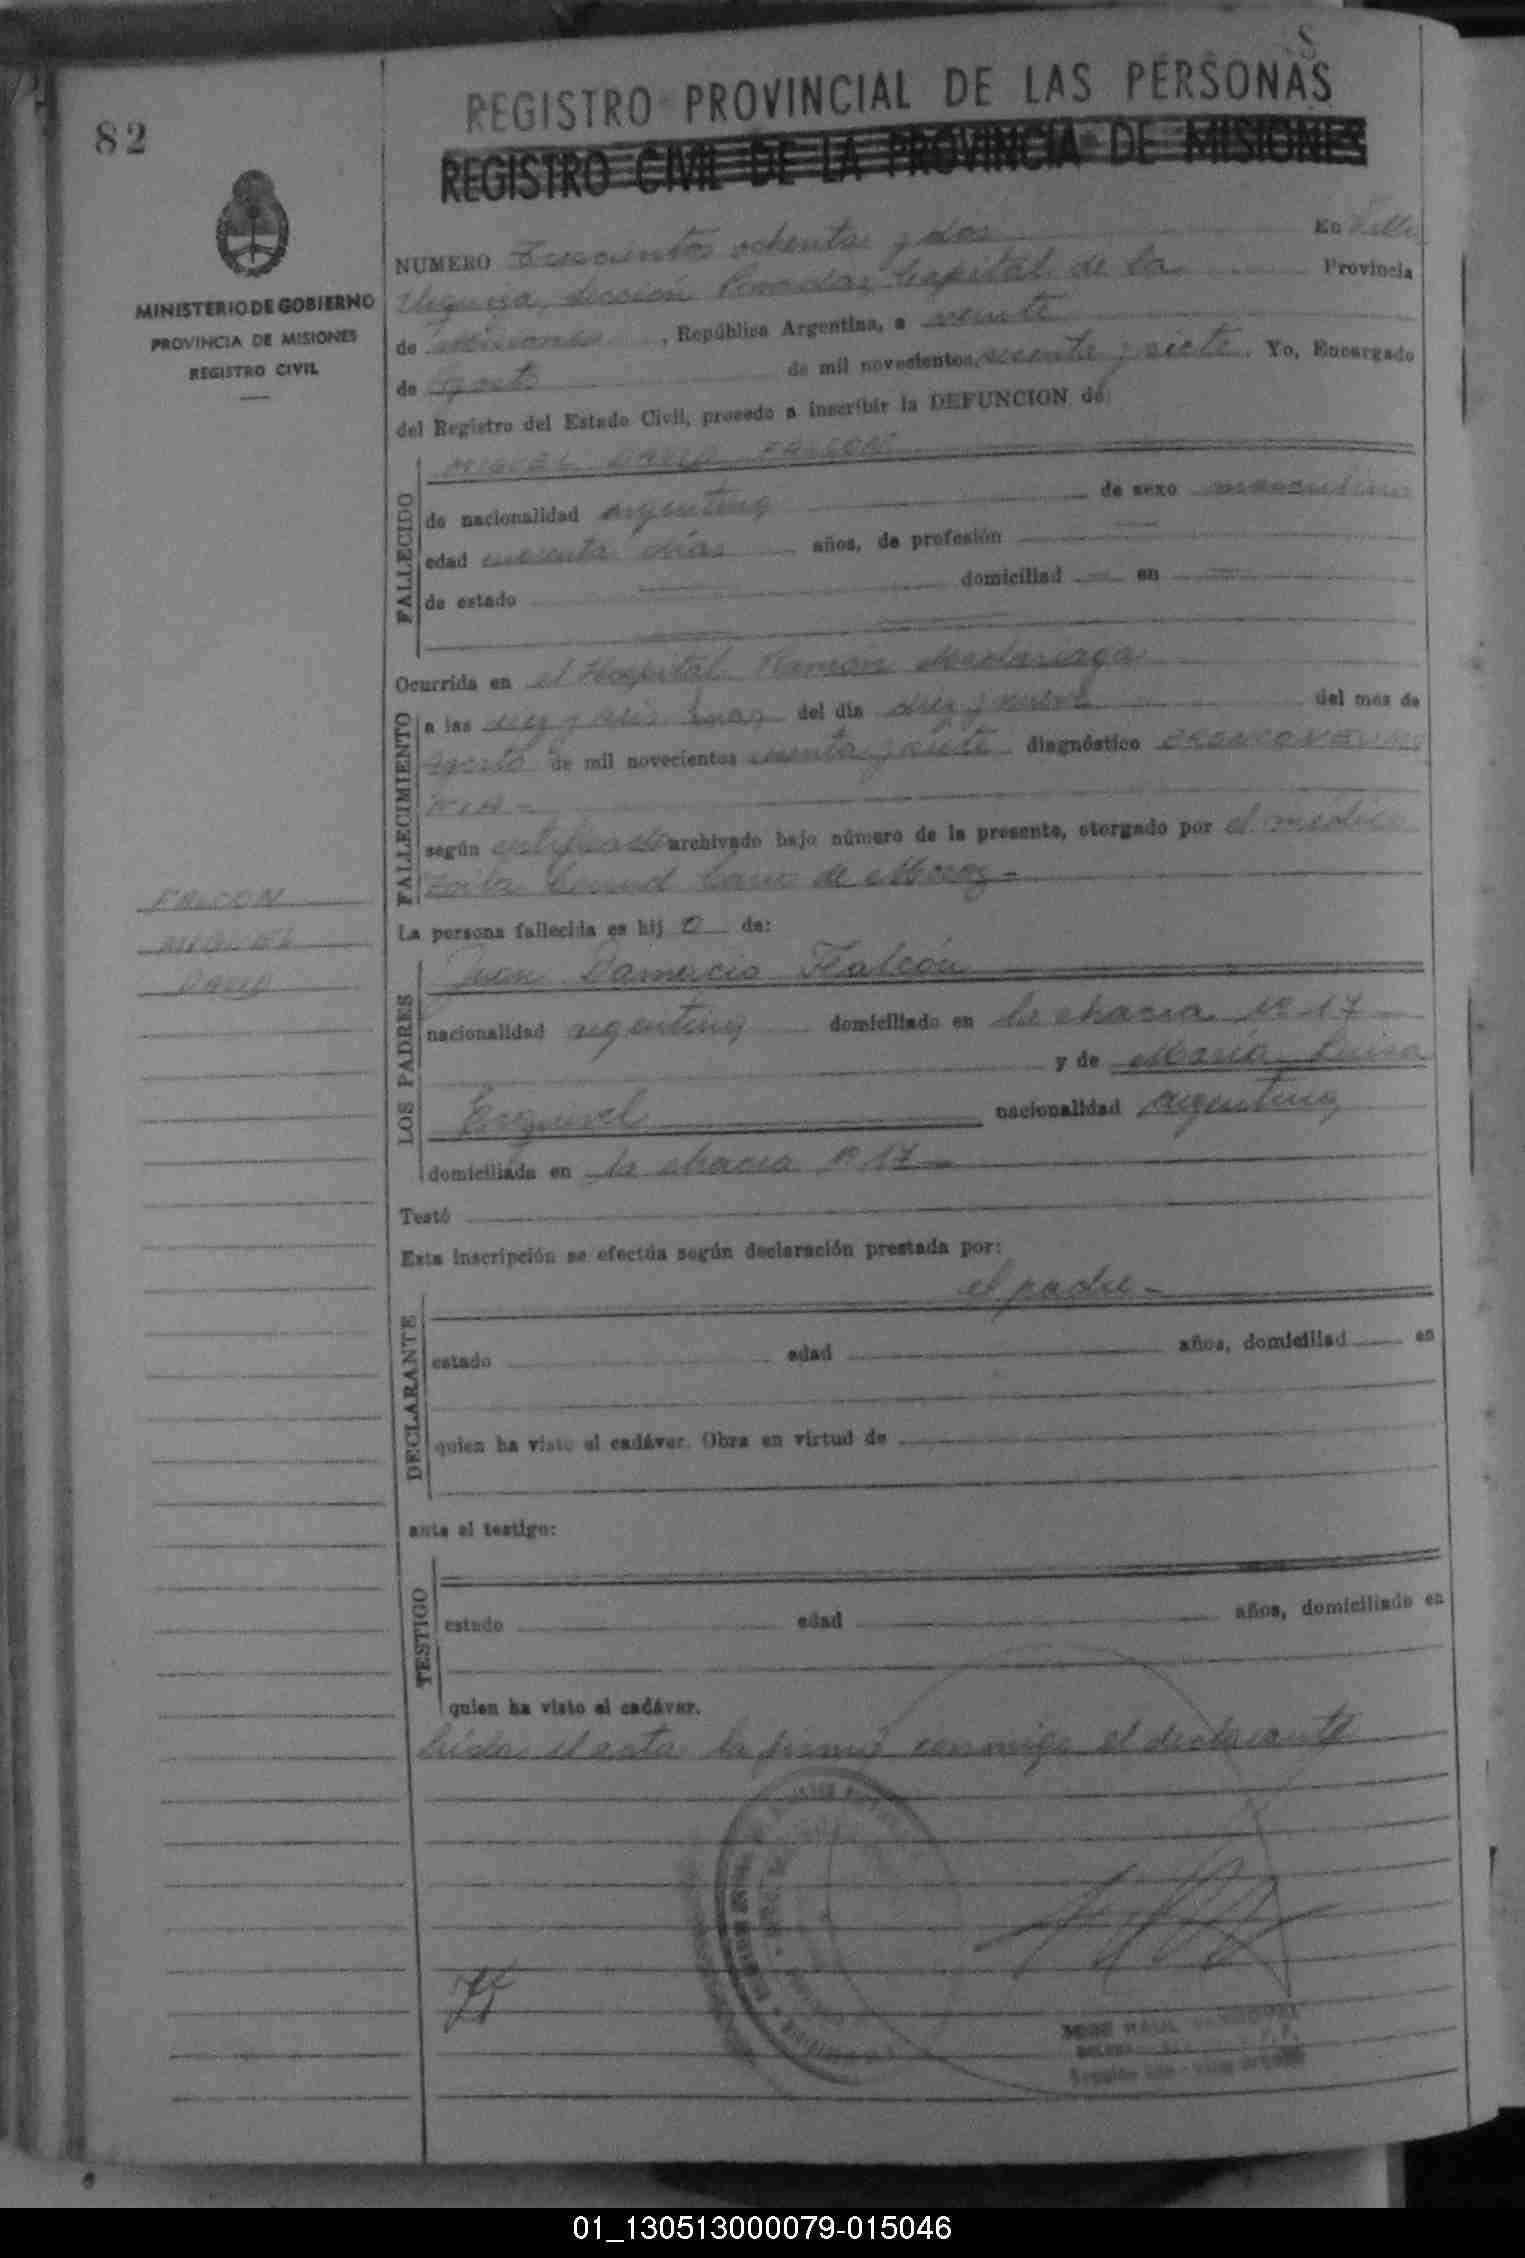 82
REGISTRO PROVINCIAL DE LAS PERSONAS
REGISTRO CIVIL DE LA PROVINCIA DE MISIONES
MINISTERIO DE GOBIERNO
PROVINCIA DE MISIONES
REGISTRO CIVIL
NUMERO Trescientos ochenta y dos En Villa
Urquiza, Sección Posadas, Capital de la Provincia
de Misiones, República Argentina, a veinte
de Agosto de mil novecientos setenta y siete. Yo, Encargado
del Registro del Estado Civil, procedo a inscribir la DEFUNCION de:
FALLECIDO
MIGUEL DAVID FALCON
de nacionalidad argentina de sexo masculino
edad cuarenta días años, de profesión
de estado domiciliad en
Ocurrida en el Hospital Ramón Madariaga
FALLECIMIENTO
a las diez y seis horas del día diez y nueve del mes de
Agosto de mil novecientos setenta y siete diagnóstico BRONCONEUMO
NIA -
según certificado archivado bajo número de la presente, otorgado por el médico
Zoila de
FALCON
MIGUEL
DAVID
La persona fallecida es hij o de:
LOS PADRES
Juan Damacio Falcón
nacionalidad argentina domiciliado en la chacra Nº 17
y de María Luisa
Esquivel nacionalidad argentina
domiciliada en la chacra nº 17 -
Testó
Esta inscripción se efectúa según declaración prestada por:
DECLARANTE
el padre -
estado edad años, domiciliad en
quien ha visto el cadáver. Obra en virtud de
ante el testigo:
TESTIGO
estado edad años, domiciliado en
quien ha visto el cadáver.
Leída el acta la firmó conmigo el declarante
01_130513000079-015046